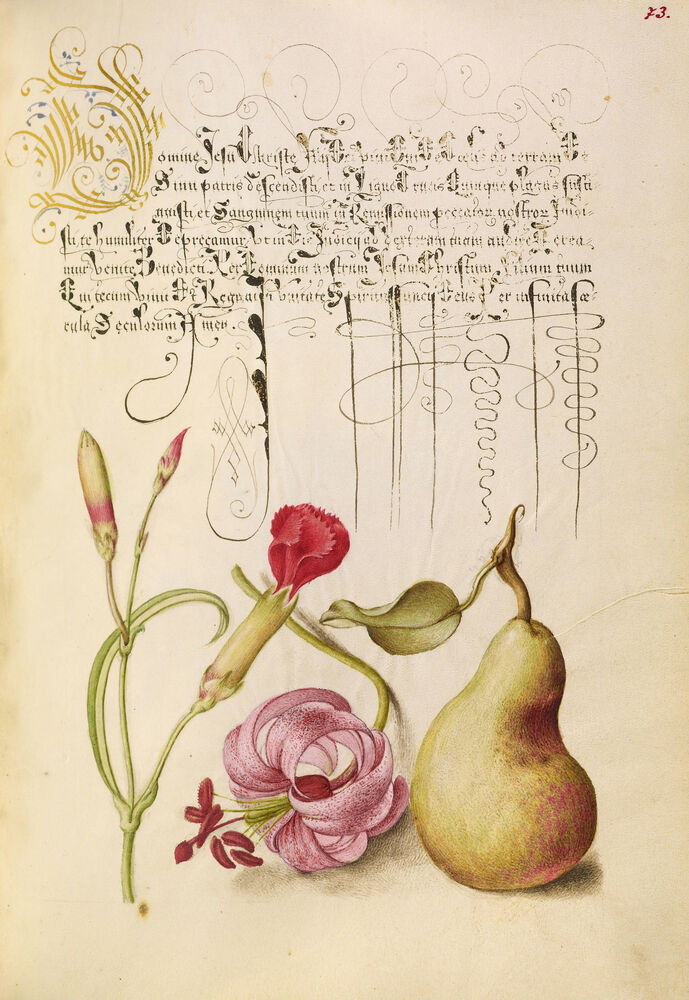 73.
Domine Jesu Christe, Qui De Cœlis ad terram De
Sinu patris descendisti, et in Ligno Crucis Quinque plagas susti
nuisti, et Sanguinem tuum in Remissionem peccator. nostror. Fudi-
sti, te humiliter Deprecamur, Vt in Die Judicij ad dexteram tuam audire Merea-
mur, Venite Benedicti. Per Dominum nostrum Jesum Christum, Filium tuum
Qui tecum Viuit Et Regnat in vnitate Spiritus Sancti Deus Per infinita sæ-
cula Sęculorum Amen.